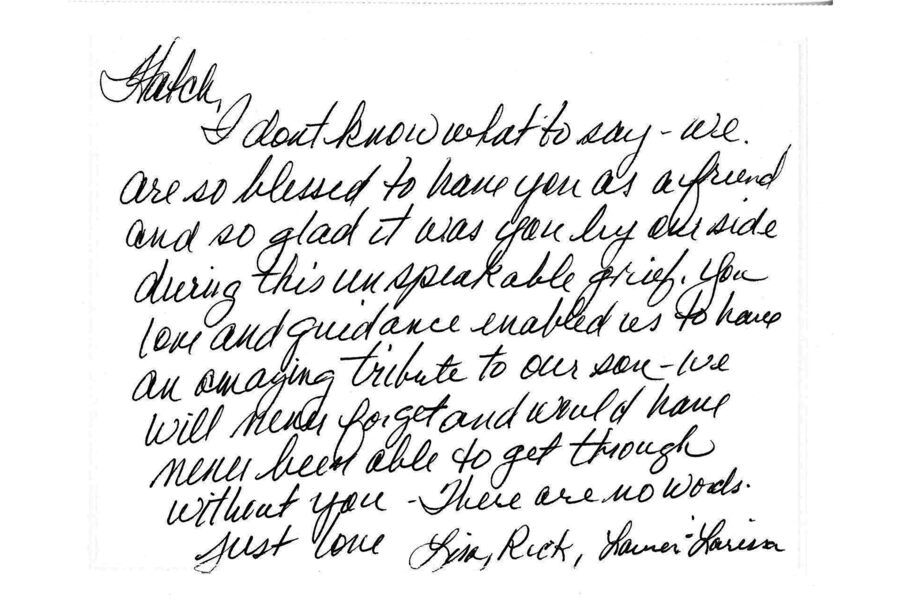 Hatch,
I dont know what to say - we
are so blessed to have you as a friend
and so glad it was you by our side
during this unspeakable grief. You
love and guidance enabled us to have
an amazing tribute to our son - we
will never forget and would have
never been able to get through
without you - There are no words.
just love Lisa, Rick, Larissa